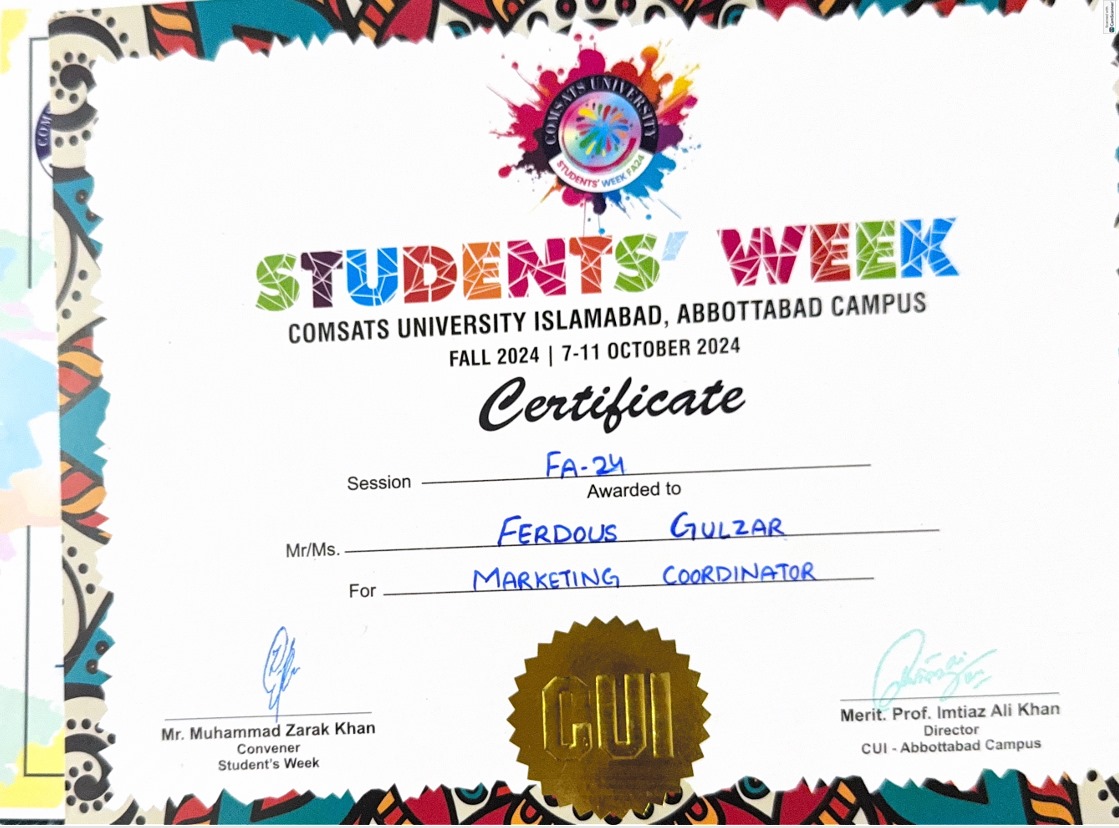 COMSATS UNIVERSITY
STUDENTS' WEEK FA24
STUDENTS' WEEK
COMSATS UNIVERSITY ISLAMABAD, ABBOTTABAD CAMPUS
FALL 2024 | 7-11 OCTOBER 2024
Certificate
Session FA-24
Awarded to
Mr/Ms. FERDOUS GULZAR
For MARKETING COORDINATOR
CUI
Mr. Muhammad Zarak Khan
Convener
Student's Week
Merit. Prof. Imtiaz Ali Khan
Director
CUI - Abbottabad Campus
COMS